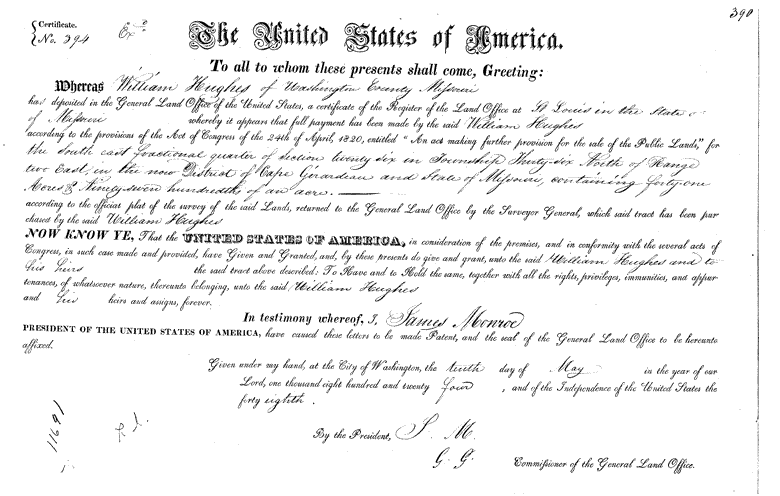 390
Certificate.
No. 394
Exd
The United States of America.
To all to whom these presents shall come, Greeting:
Whereas William Hughes of Washington County Missouri
has deposited in the General Land Office of the United States, a certificate of the Register of the Land Office at St Louis in the State
of Missouri whereby it appears that full payment has been made by the said William Hughes
according to the provisions of the Act of Congress of the 24th of April, 1820, entitled "An act making further provision for the sale of the Public Lands," for
the South east fractional quarter of section twenty six in Township Thirty-six North of Range
two East, in the now District of Cape Girardeau and State of Missouri, containing forty-one
Acres & Ninety-seven hundredths of an acre.
according to the official plat of the survey of the said Lands, returned to the General Land Office by the Surveyor General, which said tract has been pur
chased by the said William Hughes
NOW KNOW YE, That the UNITED STATES OF AMERICA, in consideration of the premises, and in conformity with the several acts of
Congress, in such case made and provided, have Given and Granted, and, by these presents do give and grant, unto the said William Hughes and to
his heirs the said tract above described: To Have and to Hold the same, together with all the rights, privileges, immunities, and appur
tenances, of whatsoever nature, thereunto belonging, unto the said William Hughes
and his heirs and assigns, forever.
In testimony whereof, I, James Monroe
PRESIDENT OF THE UNITED STATES OF AMERICA, have caused these letters to be made Patent, and the seal of the General Land Office to be hereunto
affixed.
Given under my hand, at the City of Washington, the tenth day of May in the year of our
Lord, one thousand eight hundred and twenty four, and of the Independence of the United States the
forty eighth.
By the President, J. M.
G. G. Commissioner of the General Land Office.
11691